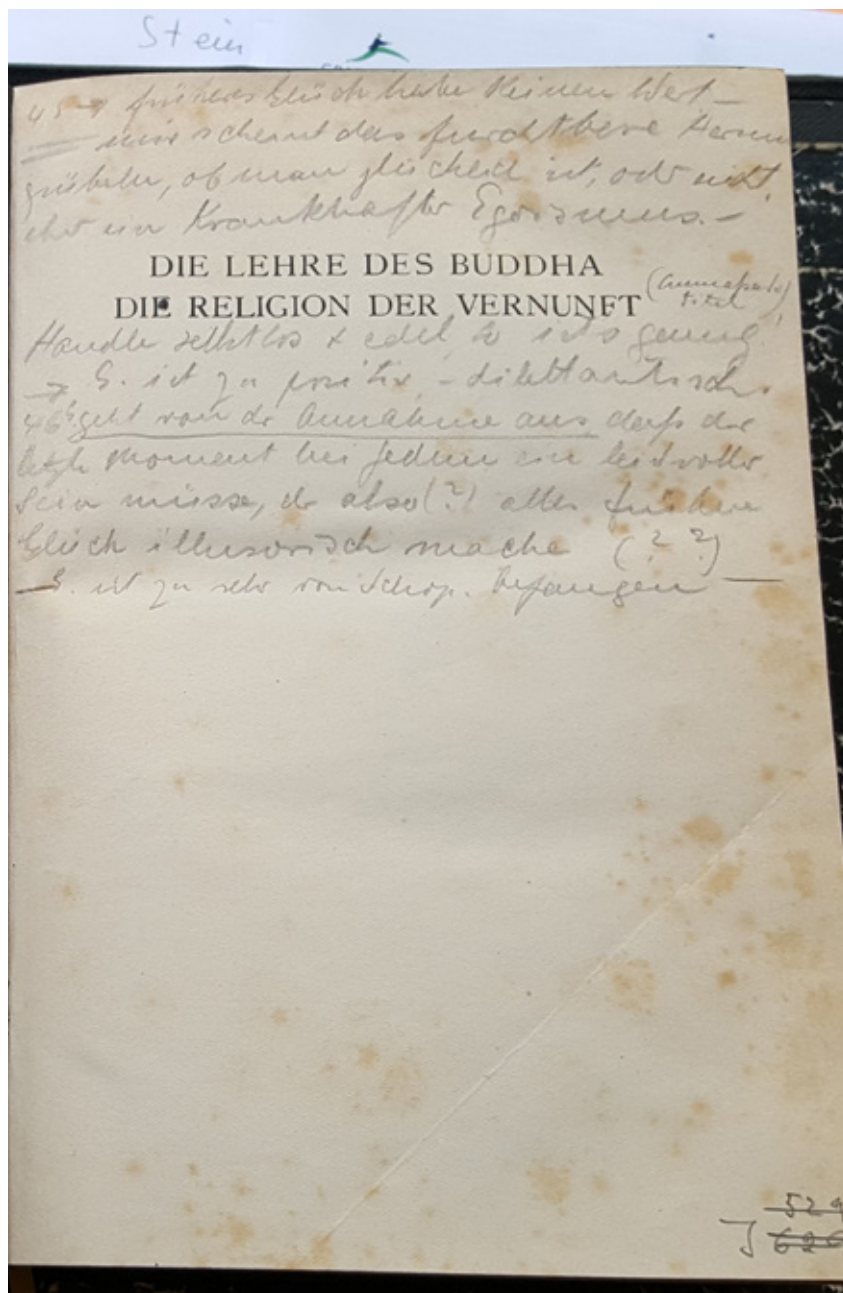 Stein
45 → früheres Glück habe keinen Wert –
mir scheint das furchtbare Herum
grübeln, ob man glücklich ist, oder nicht,
eher ein Krankhafter Egoismus. –
DIE LEHRE DES BUDDHA
DIE RELIGION DER VERNUNFT
titel
Handle selbstlos & edel, so ists genug!
→ G. ist zu positiv – dilettantisch
46 geht von der Annahme aus, daß der
letzte Moment bei jedem ein leidvoller
sein müsse, der also (?) alles frühere
Glück illusorisch mache (? ?)
– G. ist zu sehr von Schop. befangen –
529